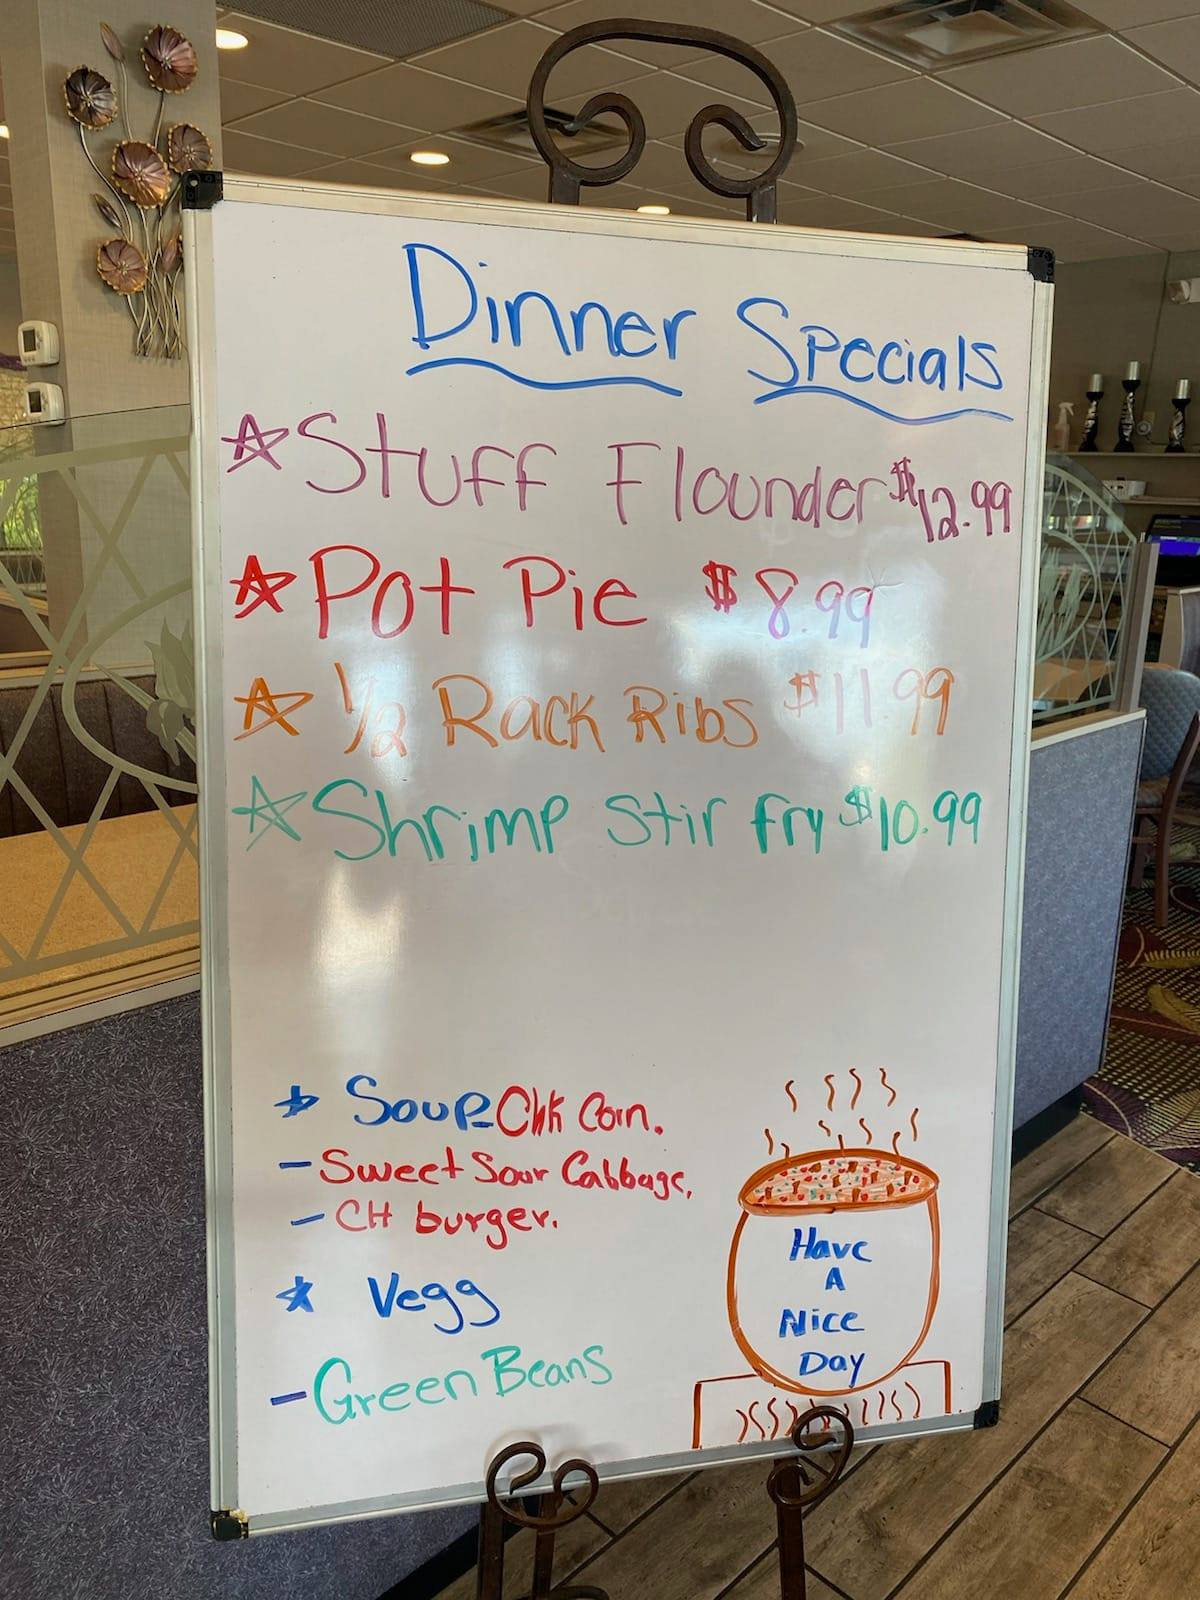 Dinner Specials
☆ Stuff Flounder $12.99
☆ Pot Pie $8.99
☆ 1/2 Rack Ribs $11.99
☆ Shrimp Stir fry $10.99
☆ Soup Chk Corn.
- Sweet Sour Cabbage,
- CH burger.
☆ Vegg
- Green Beans
Have
A
Nice
Day